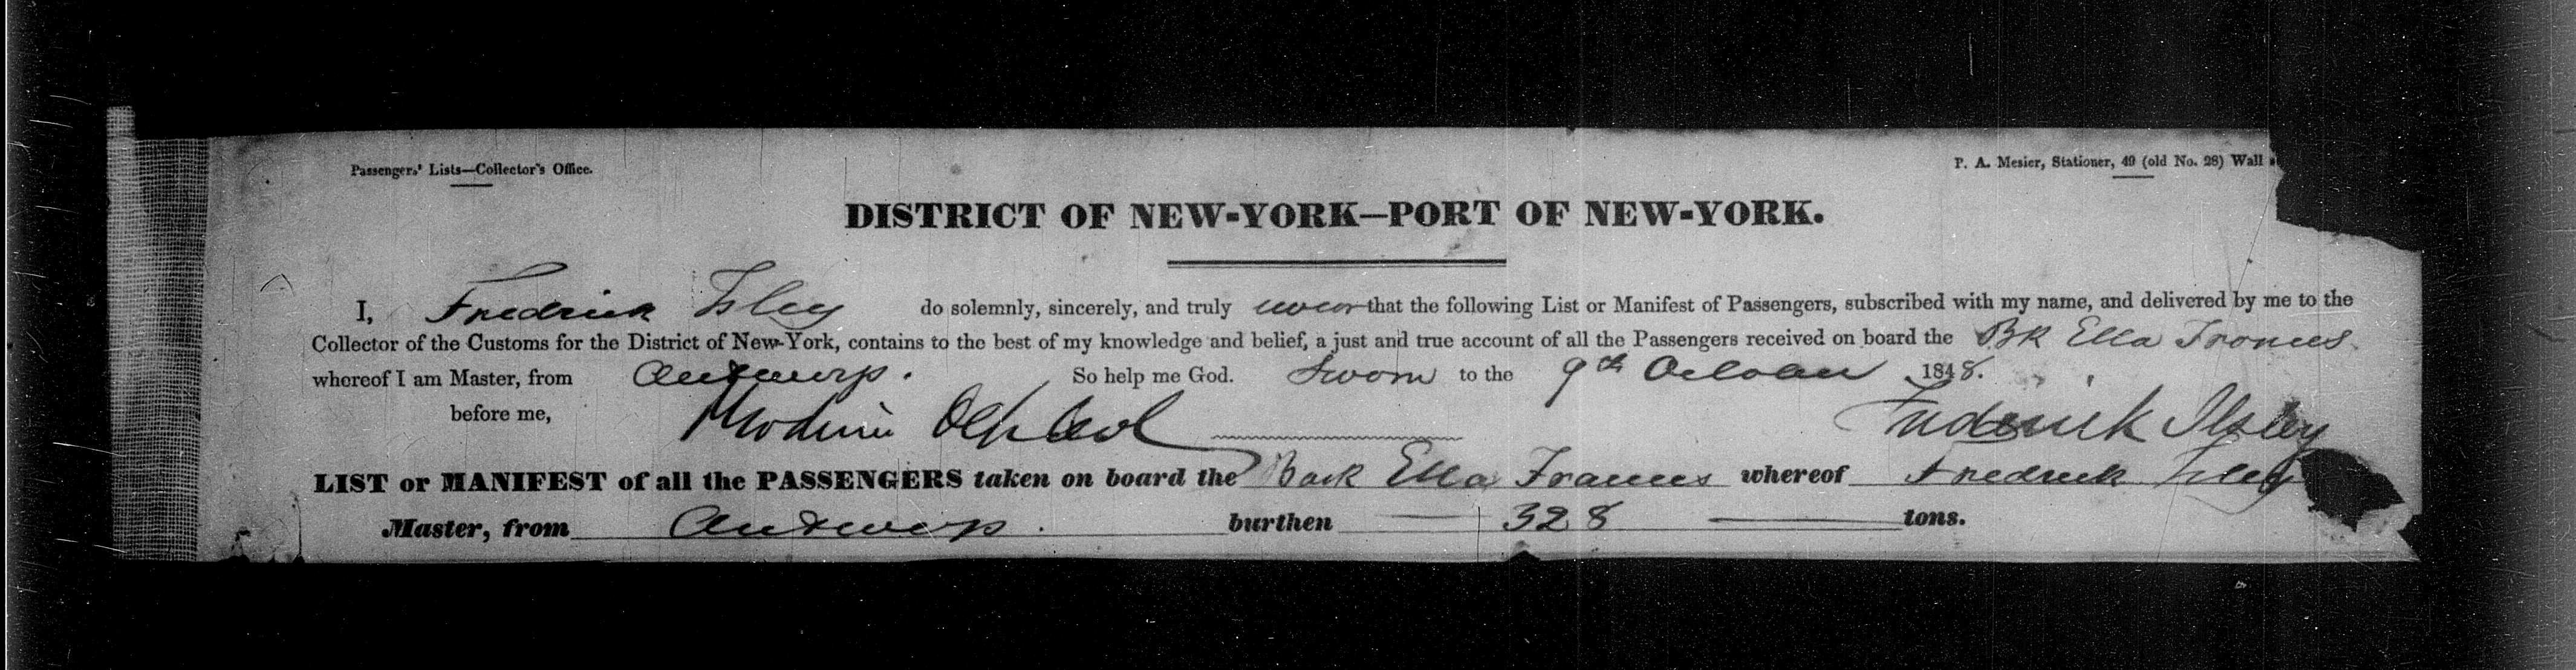 Passengers' Lists—Collector's Office.
P. A. Mesier, Stationer, 49 (old No. 28) Wall
DISTRICT OF NEW-YORK—PORT OF NEW-YORK.
I, Fredrick Ilsley do solemnly, sincerely, and truly swear that the following List or Manifest of Passengers, subscribed with my name, and delivered by me to the
Collector of the Customs for the District of New-York, contains to the best of my knowledge and belief, a just and true account of all the Passengers received on board the Bk Ella Frances
whereof I am Master, from Antwerp. So help me God. Sworn to the 9th October 1848.
before me, Frederick Ilsley
LIST or MANIFEST of all the PASSENGERS taken on board the Bark Ella Frances whereof Fredrick Ilsley
Master, from Antwerp. burthen 328 tons.